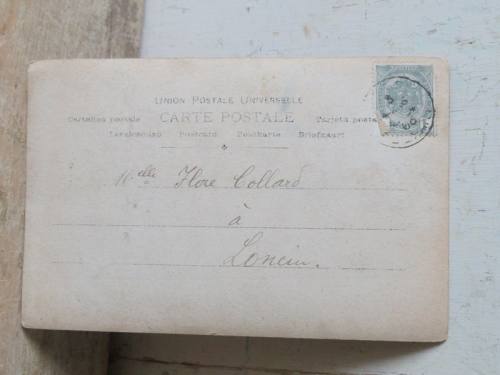 UNION POSTALE UNIVERSELLE
CARTE POSTALE
Cartolina postale Tarjeta postal
Levelezőlap Postcard Postkarte Briefkaart
Mlle Flore Collard
à
Loncin.